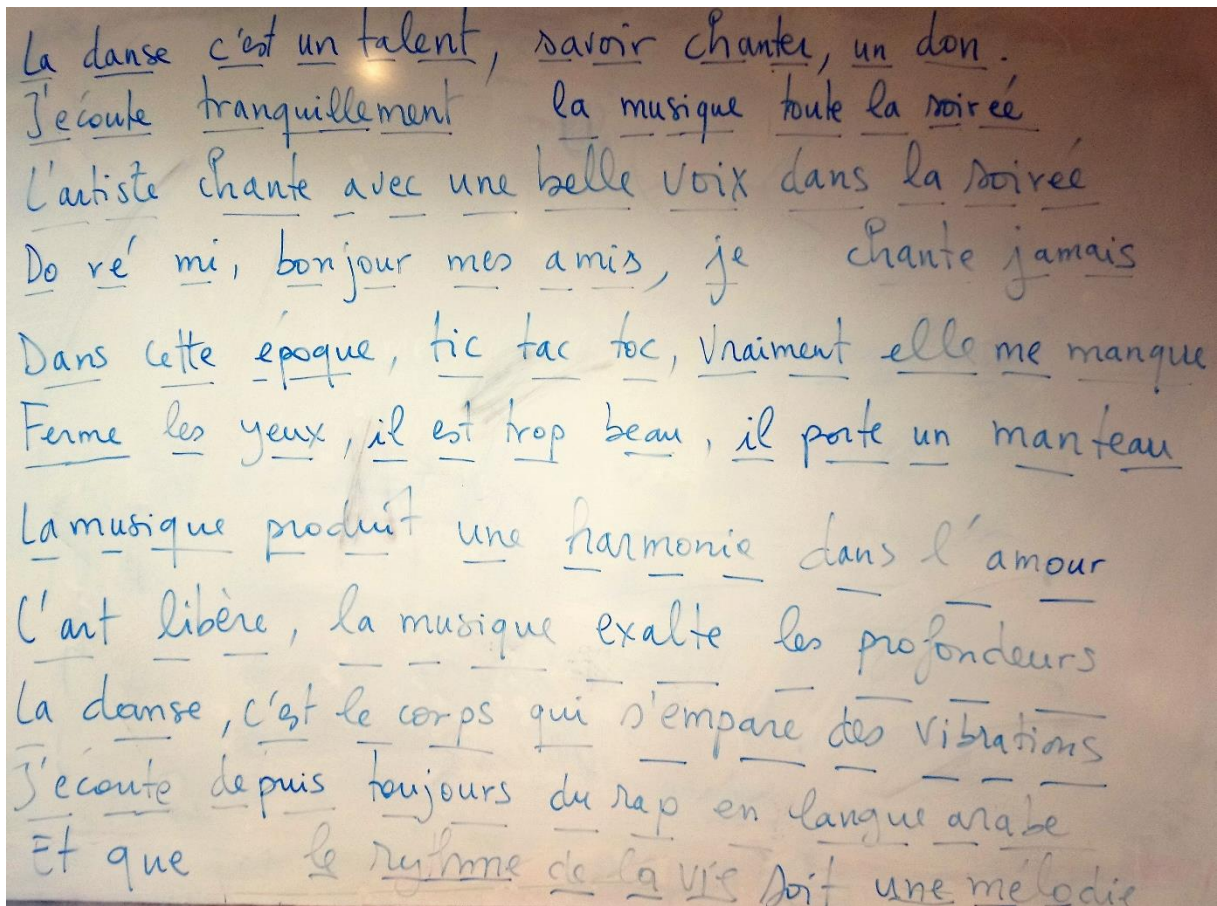 La danse c'est un talent, savoir chanter, un don.
J'ecoute tranquillement la musique toute la soireé
L'artiste chante avec une belle voix dans la soireé
Do ré mi, bonjour mes amis, je chante jamais
Dans cette époque, tic tac toc, vraiment elle me manque
Ferme les yeux, il est trop beau, il porte un manteau
La musique produit une harmonie dans l'amour
L'art libère, la musique exalte les profondeurs
La danse, c'est le corps qui s'empare des vibrations
J'ecoute depuis toujours du rap en langue arabe
Et que le rythme de la vie soit une mélodie